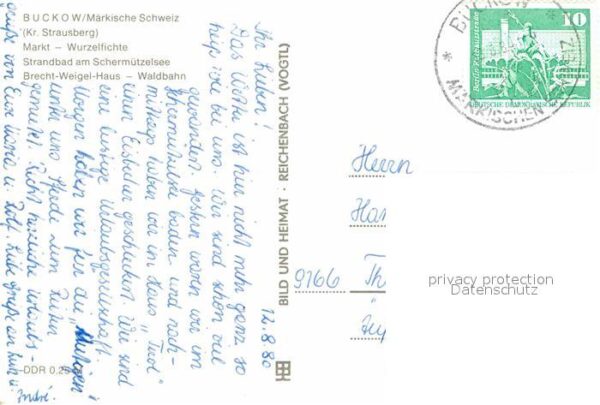 BUCKOW/Märkische Schweiz
(Kr. Strausberg)
Markt – Wurzelfichte
Strandbad am Schermützelsee
Brecht-Weigel-Haus – Waldbahn
DDR 0.25
BILD UND HEIMAT · REICHENBACH (VOGTL)
12.8.80
Ihr Lieben!
Das Wetter ist hier nicht mehr ganz so
heiß wie zu uns. Wir sind schon viel
gewandert. Gestern waren wir im
Schermützelsee baden und nach-
mittags haben wir im Haus „Tirol"
einen Eisbecher geschlemmt. Wir sind
eine lustige Urlaubsgesellschaft.
Morgen haben wir für die
unten uns Pferde zum Reiten
gemietet. Recht herzliche Urlaubs-
grüße von Eure Maria u. Rolf. Liebe Grüße an
André.
Herrn
Han
9166 Th
BUCKOW
MÄRKISCHEN
10
DEUTSCHE DEMOKRATISCHE REPUBLIK
privacy protection
Datenschutz